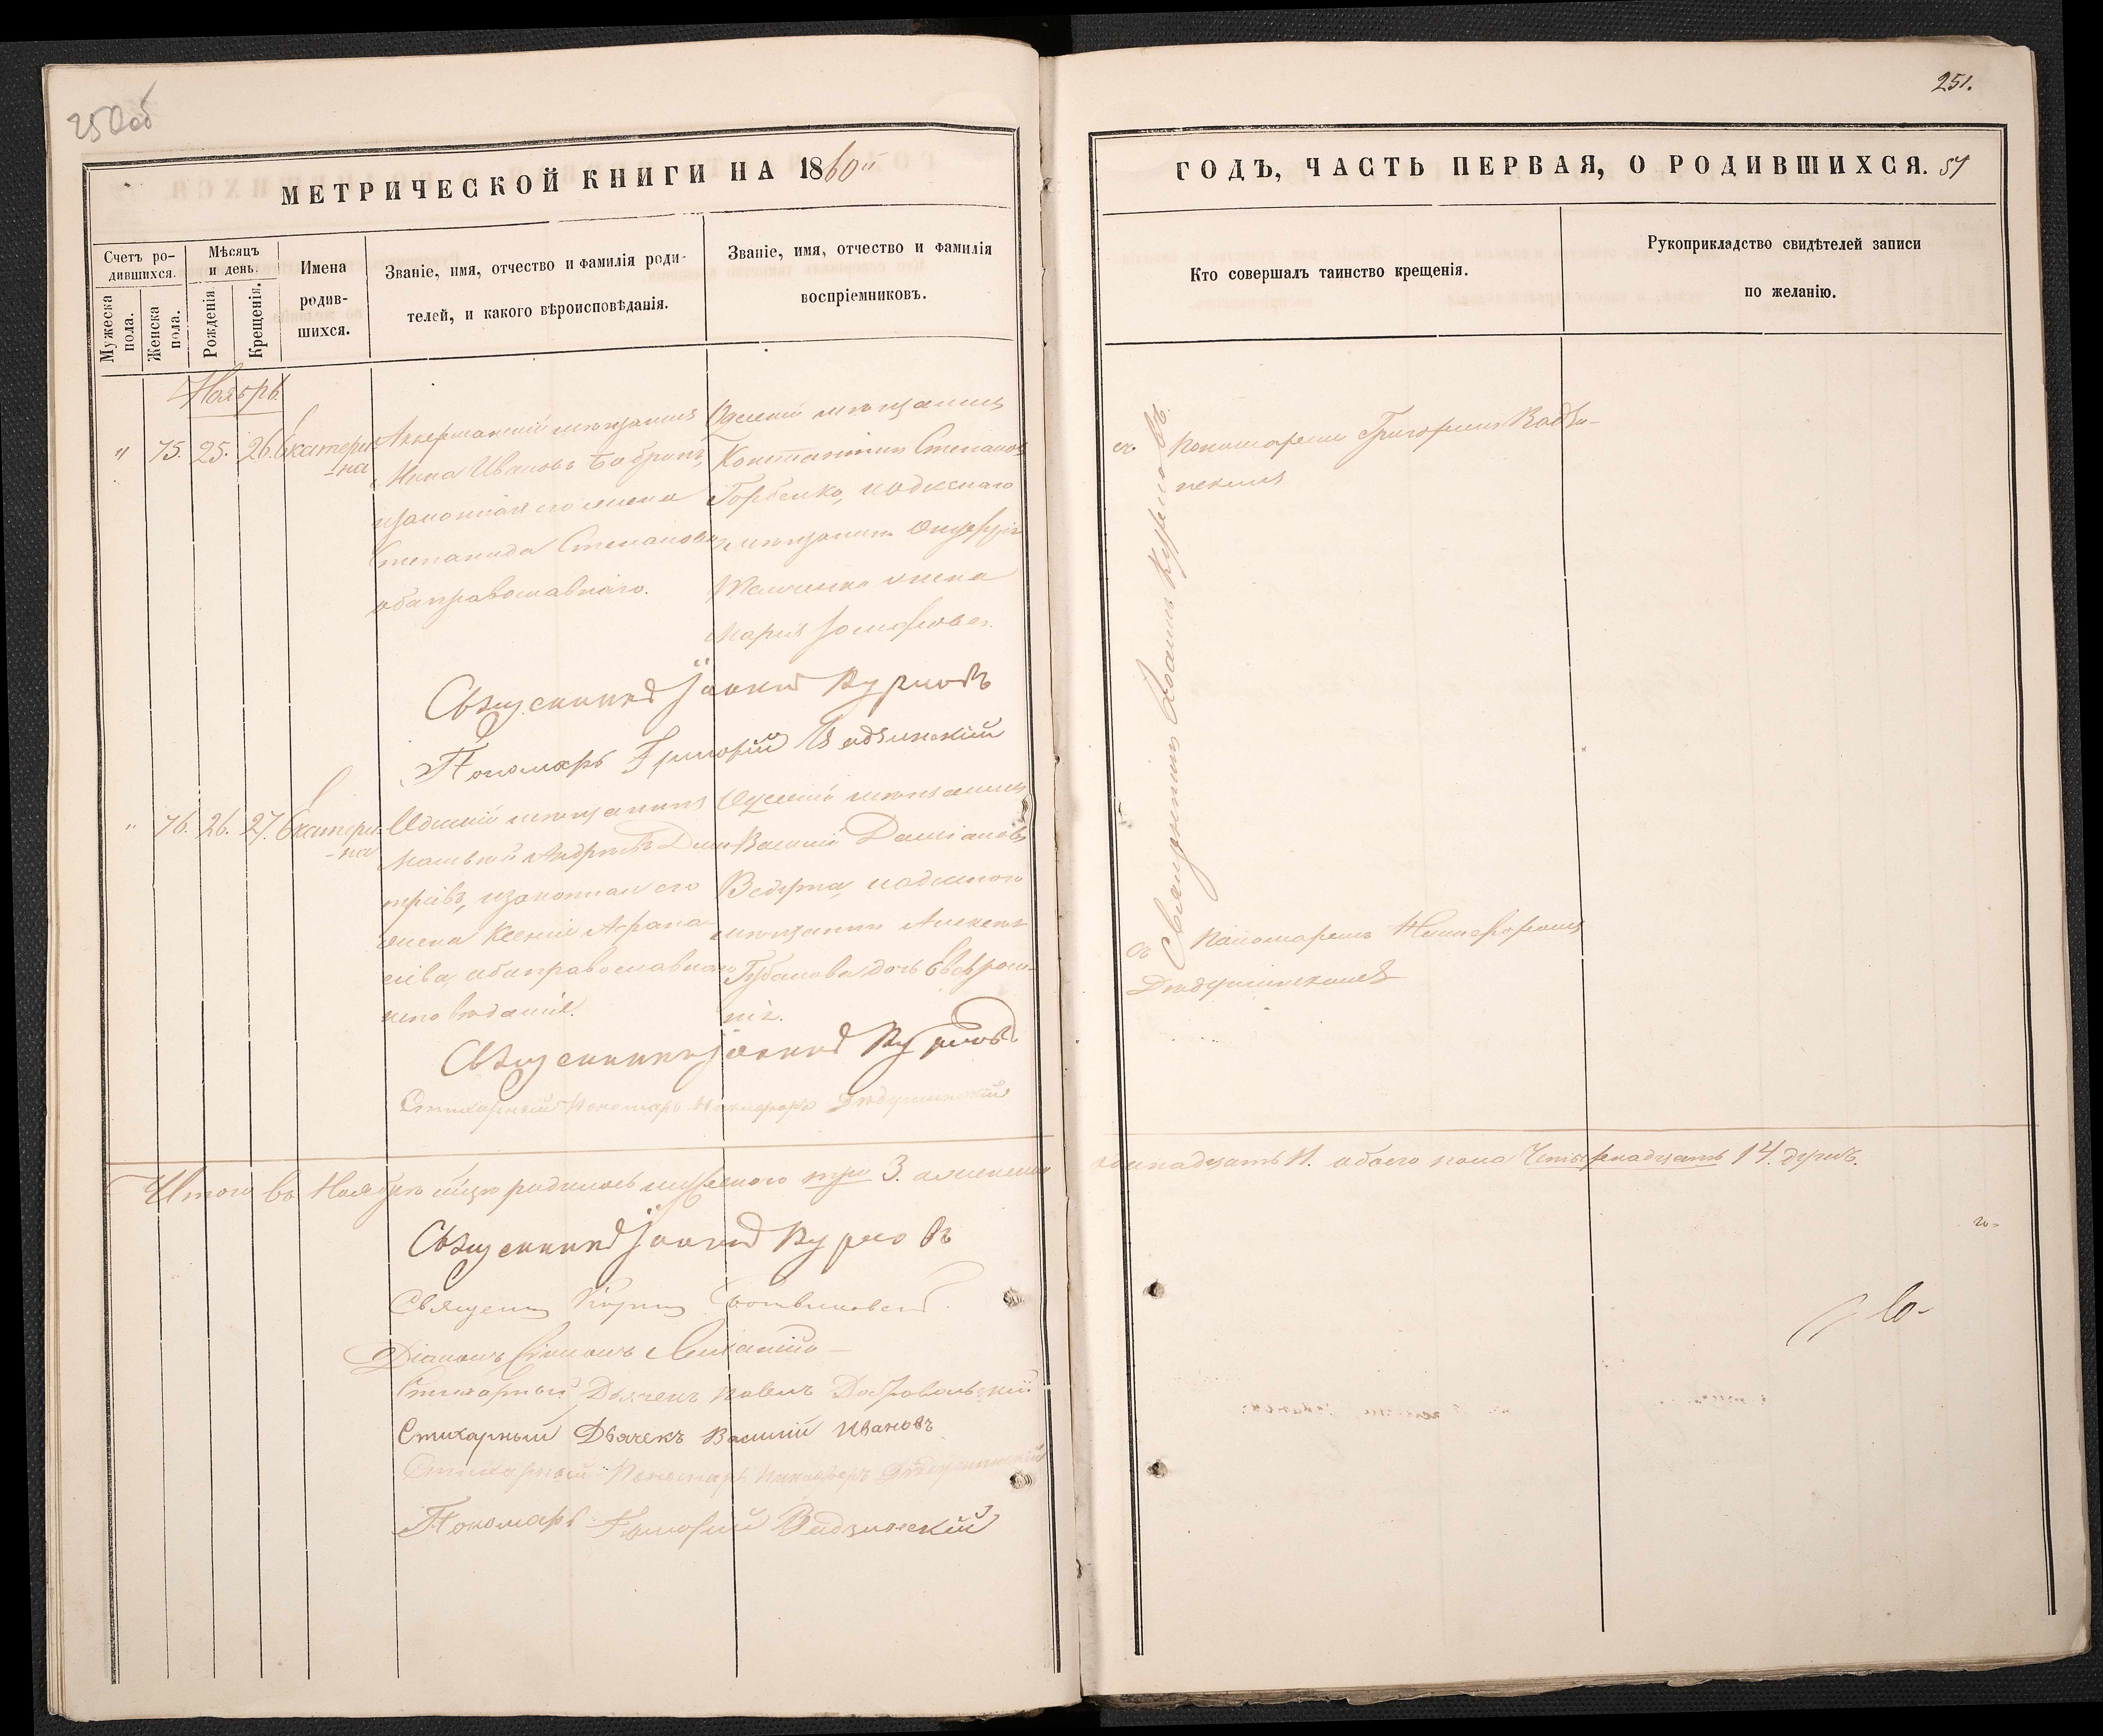 250об
МЕТРИЧЕСКОЙ КНИГИ НА 1860й
Счетъ ро-
дившихся.
Мужеска
пола.
Женска
пола.
Мѣсяцъ
и день.
Рожденія.
Крещенія.
Имена
родив-
шихся.
Званіе, имя, отчество и фамилія роди-
телей, и какого вѣроисповѣданія.
Званіе, имя, отчество и фамилія
воспріемниковъ.
Ноябрь.
" 75. 25. 26. Екатери-
-на
Аккерманскій мѣщанинъ
Мина Ивановъ
изаконная его жена
Степанида Степанова
оба православнаго.
Одескій мѣщанинъ
Константинъ Степановъ
Горбенко, иодескаго
мѣщанина
жена
Марія
Священникъ Іоаннъ Курновъ
Пономарь Григорій Вадзинскій
" 76. 26. 27. Екатери-
-на
Одескій мѣщанинъ
Матвѣй Андреевъ Дми-
тріевъ, изаконная его
жена Ксенія Афана-
сіева, оба православнаго
исповѣданія.
Одескій мѣщанинъ
Василій Даміановъ
иодескаго
мѣщанина Алексѣя
Губанова дочь Евфроси-
нія.
Священникъ Іоаннъ Курновъ
Стихарный Пономарь Никифоръ Дѣдушинскій
Итого въ Ноябрѣ м҃цѣ родилось мужескаго три 3. а женскаго
Священникъ Іоаннъ Курновъ
Священникъ
Діаконъ Сімеонъ
Стихарный Дьячекъ Павелъ Добровольскій
Стихарный Дьячекъ Василій Ивановъ
Стихарный Пономарь Никифоръ Дѣдушинскій
Пономарь Григорій Вадзинскій
251.
ГОДЪ, ЧАСТЬ ПЕРВАЯ, О РОДИВШИХСЯ. 51
Кто совершалъ таинство крещенія.
Рукоприкладство свидѣтелей записи
по желанію.
Священникъ Іоаннъ Курновъ
съ Пономаремъ Григоріемъ Вадзи-
нскимъ
съ Пономаремъ Никифоромъ
Дѣдушинскимъ
одинадцать 11. обоего пола Четырнадцать 14. душъ.